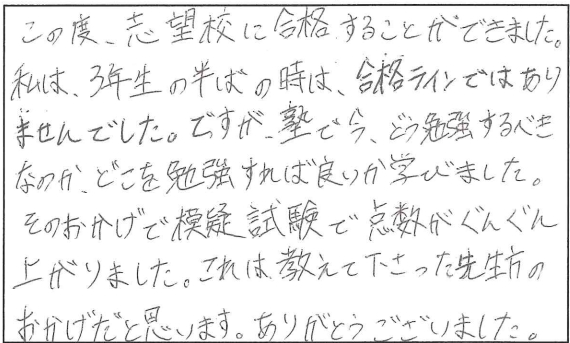 この度、志望校に合格することができました。
私は、3年生の半ばの時は、合格ラインではあり
ませんでした。ですが、塾で今、どう勉強するべき
なのか、どこを勉強すれば良いか学びました。
そのおかげで模疑試験で点数がぐんぐん
上がりました。これは教えて下さった先生方の
おかげだと思います。ありがとうございました。